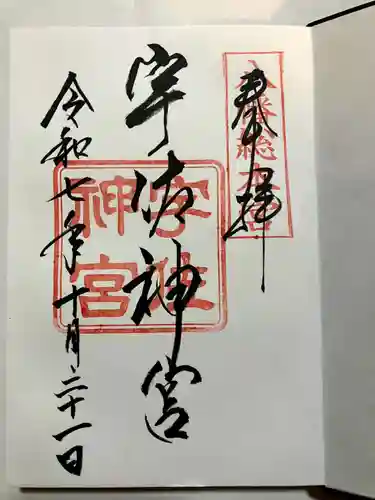 奉拝
八幡總本宮
宇佐神宮
宇佐
神宮
令和七年十月二十一日